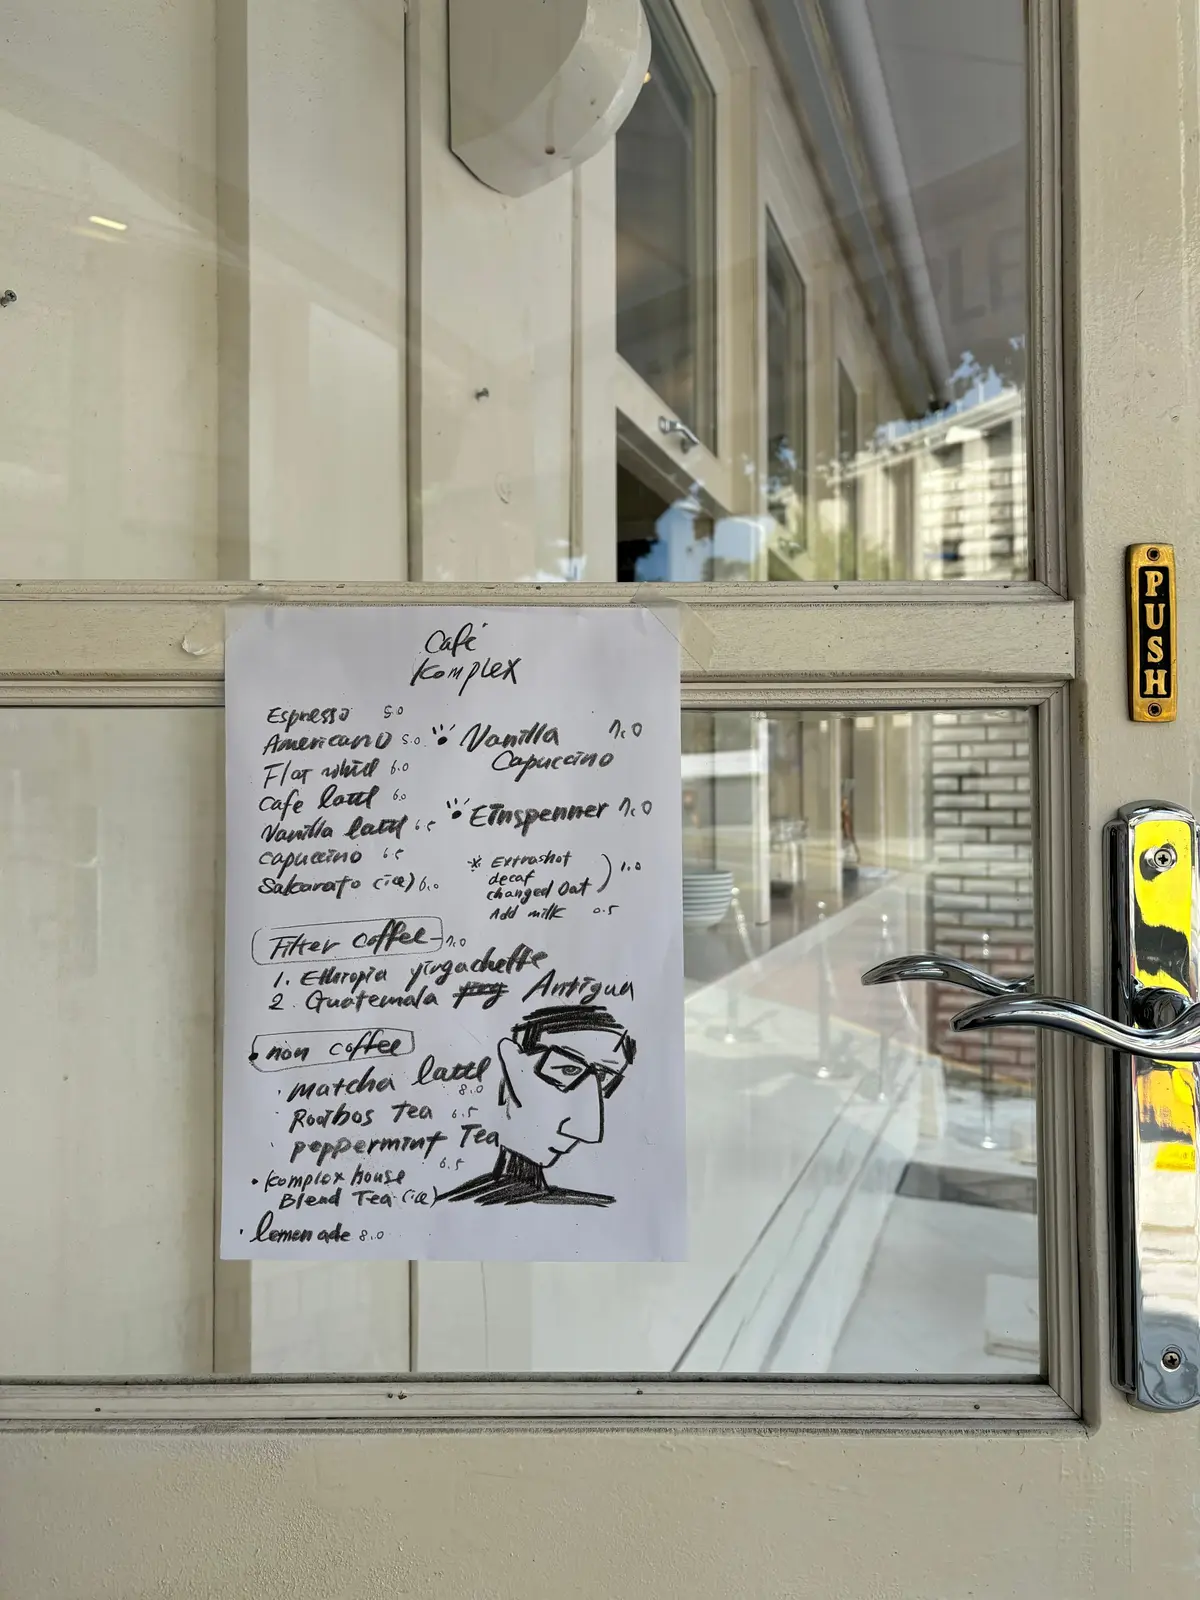 Café
Komplex
Espresso 5.0
Americano 5.0
Flat whitl 6.0
Cafe lattl 6.0
Vanilla lattl 6.5
Capuccino 6.5
Sakarato (ice) 6.0
Vanilla 7.0
Capuccino
Einspenner 7.0
* Extrashot
decaf
changed Oat ) 1.0
Add milk 0.5
Filter coffee - 7.0
1. Ethiopia yirgacheffe
2. Guatemala Antigua
• non coffee
· Matcha lattl
8.0
Rooibos Tea 6.5
· peppermint Tea
6.5
• Komplex house
Blend Tea (ice)
· lemonade 8.0
PUSH